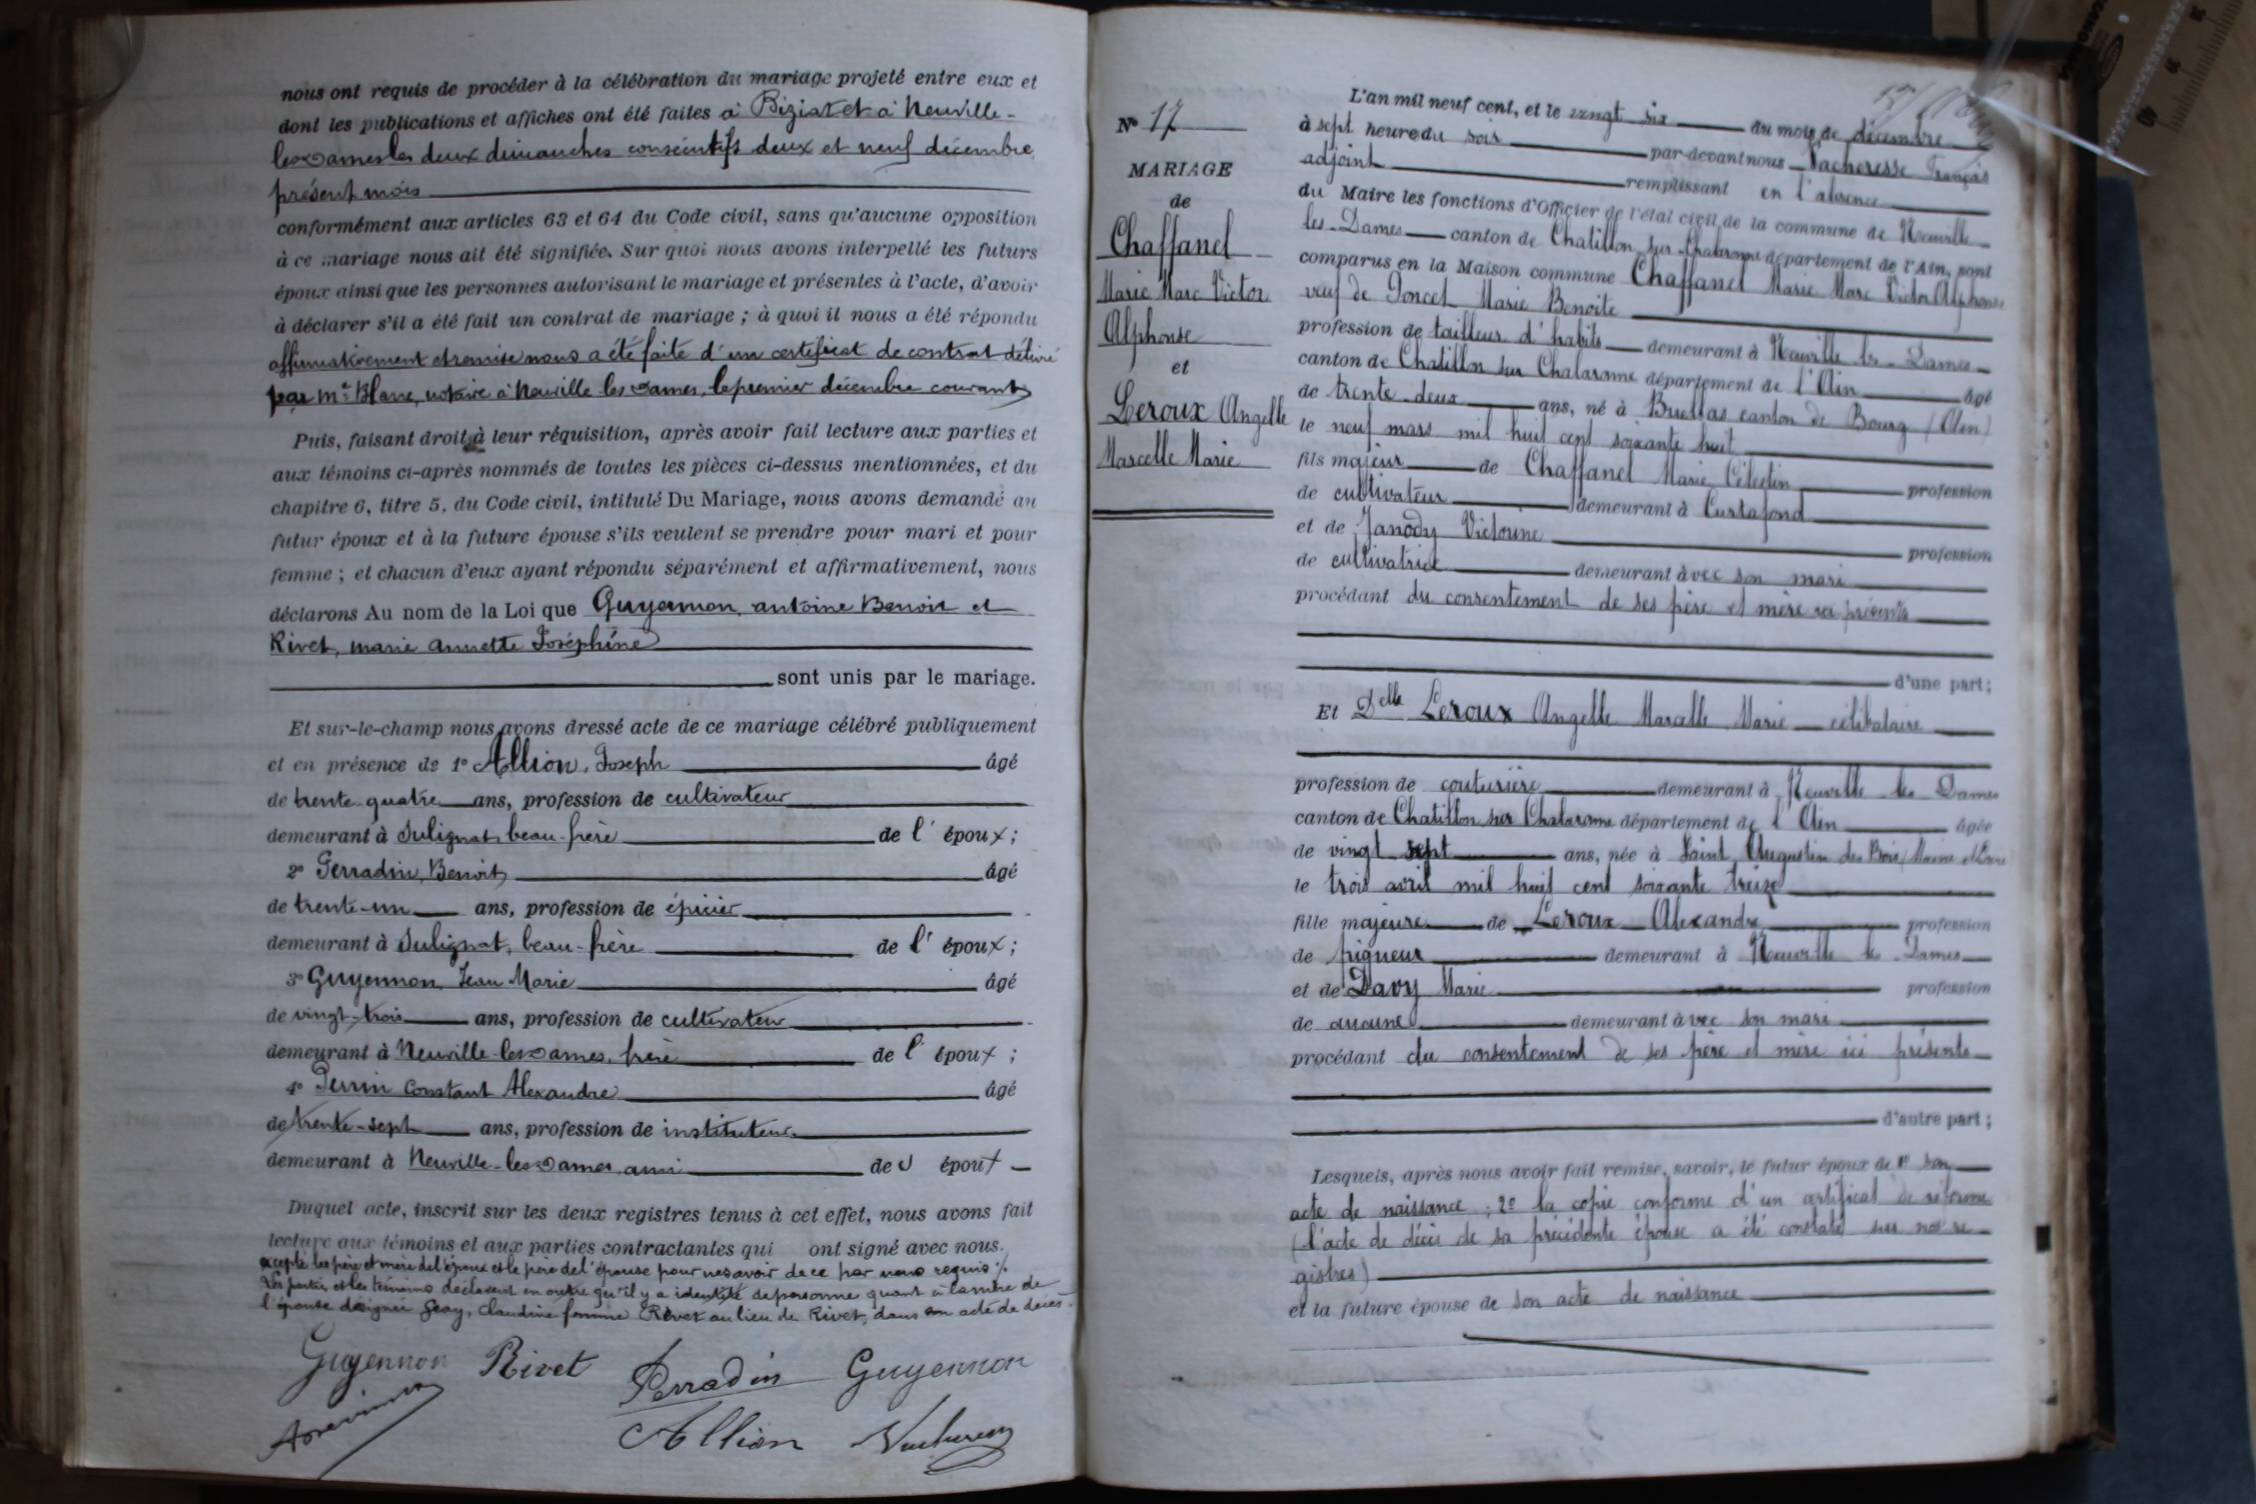 nous ont requis de procéder à la célébration du mariage projeté entre eux et
dont les publications et affiches ont été faites à Biziat et à Neuville-
les-Dames les deux dimanches consécutifs deux et neuf décembre
présent mois
conformément aux articles 63 et 64 du Code civil, sans qu'aucune opposition
à ce mariage nous ait été signifiée. Sur quoi nous avons interpellé les futurs
époux ainsi que les personnes autorisant le mariage et présentes à l'acte, d'avoir
à déclarer s'il a été fait un contrat de mariage ; à quoi il nous a été répondu
affirmativement et remise nous a été faite d'un certificat de contrat délivré
par Me Blanc, notaire à Neuville les Dames, le premier décembre courant
Puis, faisant droit à leur réquisition, après avoir fait lecture aux parties et
aux témoins ci-après nommés de toutes les pièces ci-dessus mentionnées, et du
chapitre 6, titre 5, du Code civil, intitulé Du Mariage, nous avons demandé au
futur époux et à la future épouse s'ils veulent se prendre pour mari et pour
femme ; et chacun d'eux ayant répondu séparément et affirmativement, nous
déclarons Au nom de la Loi que Guyennon, antoine Benoit et
Rivet, marie annette Joséphine
sont unis par le mariage.
Et sur-le-champ nous avons dressé acte de ce mariage célébré publiquement
et en présence de 1° Allion, Joseph âgé
de trente-quatre ans, profession de cultivateur
demeurant à Sulignat, beau-frère de l'époux ;
2° Perradin, Benoit âgé
de trente-un ans, profession de épicier
demeurant à Sulignat, beau-frère de l'époux ;
3° Guyennon, Jean Marie âgé
de vingt-trois ans, profession de cultivateur
demeurant à Neuville-les-Dames, frère de l'époux ;
4° Perrin Constant Alexandre âgé
de trente-sept ans, profession de instituteur
demeurant à Neuville-les-Dames, ami de l'époux
Duquel acte, inscrit sur les deux registres tenus à cet effet, nous avons fait
lecture aux témoins et aux parties contractantes qui ont signé avec nous.
excepté les père et mère de l'époux et le père de l'épouse pour ne savoir de ce par nous requis %.
Les parties et les témoins déclarent en outre qu'il y a identité de personne quant à la mère de
l'épouse désignée Geay, Claudine femme Révet au lieu de Rivet, dans son acte de décès.
Guyennon Rivet Perradin Guyennon
Allion Vacheresse
N° 17
MARIAGE
de
Chaffanel
Marie Marc Victor
Alphonse
et
Leroux Angelle
Marcelle Marie
L'an mil neuf cent, et le vingt six du mois de décembre
à sept heure du soir par-devant nous Vacheresse François
adjoint remplissant en l'absence
du Maire les fonctions d'Officier de l'état civil de la commune de Neuville
les-Dames canton de Chatillon sur Chalaronne département de l'Ain, sont
comparus en la Maison commune Chaffanel Marie Marc Victor Alphonse
veuf de Poncet Marie Benoite
profession de tailleur d'habits demeurant à Neuville les-Dames
canton de Chatillon sur Chalaronne département de l'Ain âgé
de trente-deux ans, né à Buellas canton de Bourg (Ain)
le neuf mars mil huit cent soixante huit
fils majeur de Chaffanel Marie Célestin profession
de cultivateur demeurant à Curtafond
et de Janody Victorine profession
de cultivatrice demeurant avec son mari
procédant du consentement de ses père et mère ici présents
d'une part ;
Et Delle Leroux Angelle Marcelle Marie célibataire
profession de couturière demeurant à Neuville les Dames
canton de Chatillon sur Chalaronne département de l'Ain âgée
de vingt sept ans, née à Saint Augustin des Bois, Maine et Loire
le trois avril mil huit cent soixante treize
fille majeure de Leroux Alexandre profession
de pigneur demeurant à Neuville les-Dames
et de Davy Marie profession
de aucune demeurant avec son mari
procédant du consentement de ses père et mère ici présents
d'autre part ;
Lesquels, après nous avoir fait remise, savoir, le futur époux de 1° son
acte de naissance ; 2° la copie conforme d'un certificat de réforme
(l'acte de décès de sa précédente épouse a été constaté sur nos re-
gistres)
et la future épouse de son acte de naissance